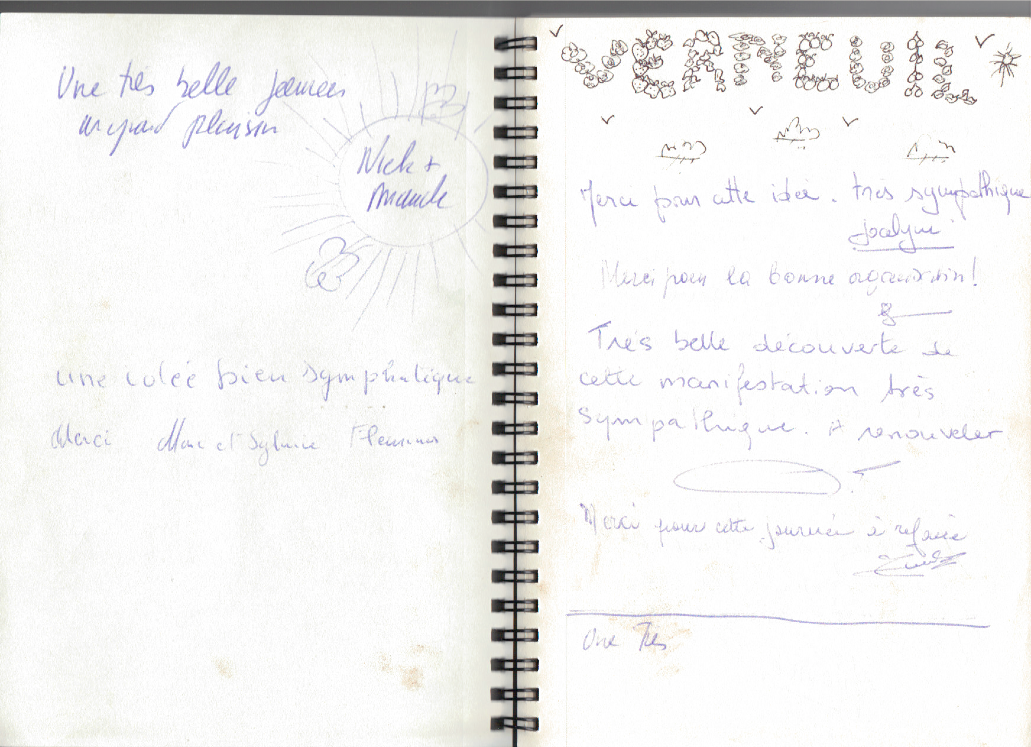 Une très belle journée
un grand plaisir
Nick +
une idée bien symphatique
Merci Marc et Sylvie
VERNEUIL
Merci pour cette idée. très sympathique
Jocelyne
Merci pour la bonne organisation!
Très belle découverte de
cette manifestation très
sympathique. A renouveler
Merci pour cette journée à refaire
Une Très